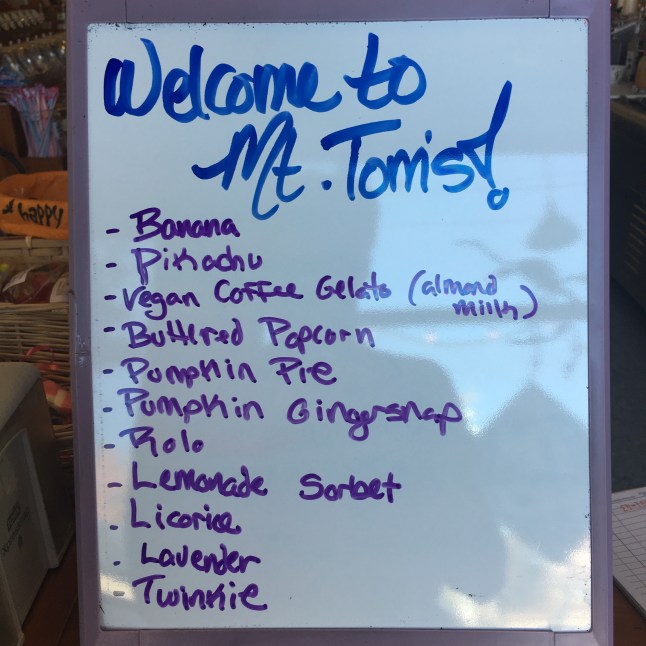 Welcome to
Mt. Tom's!
- Banana
- Pikachu
- Vegan Coffee Gelato (almond
milk)
- Buttered Popcorn
- Pumpkin Pie
- Pumpkin Gingersnap
- Rolo
- Lemonade Sorbet
- Licorice
- Lavender
- Twinkie
happy